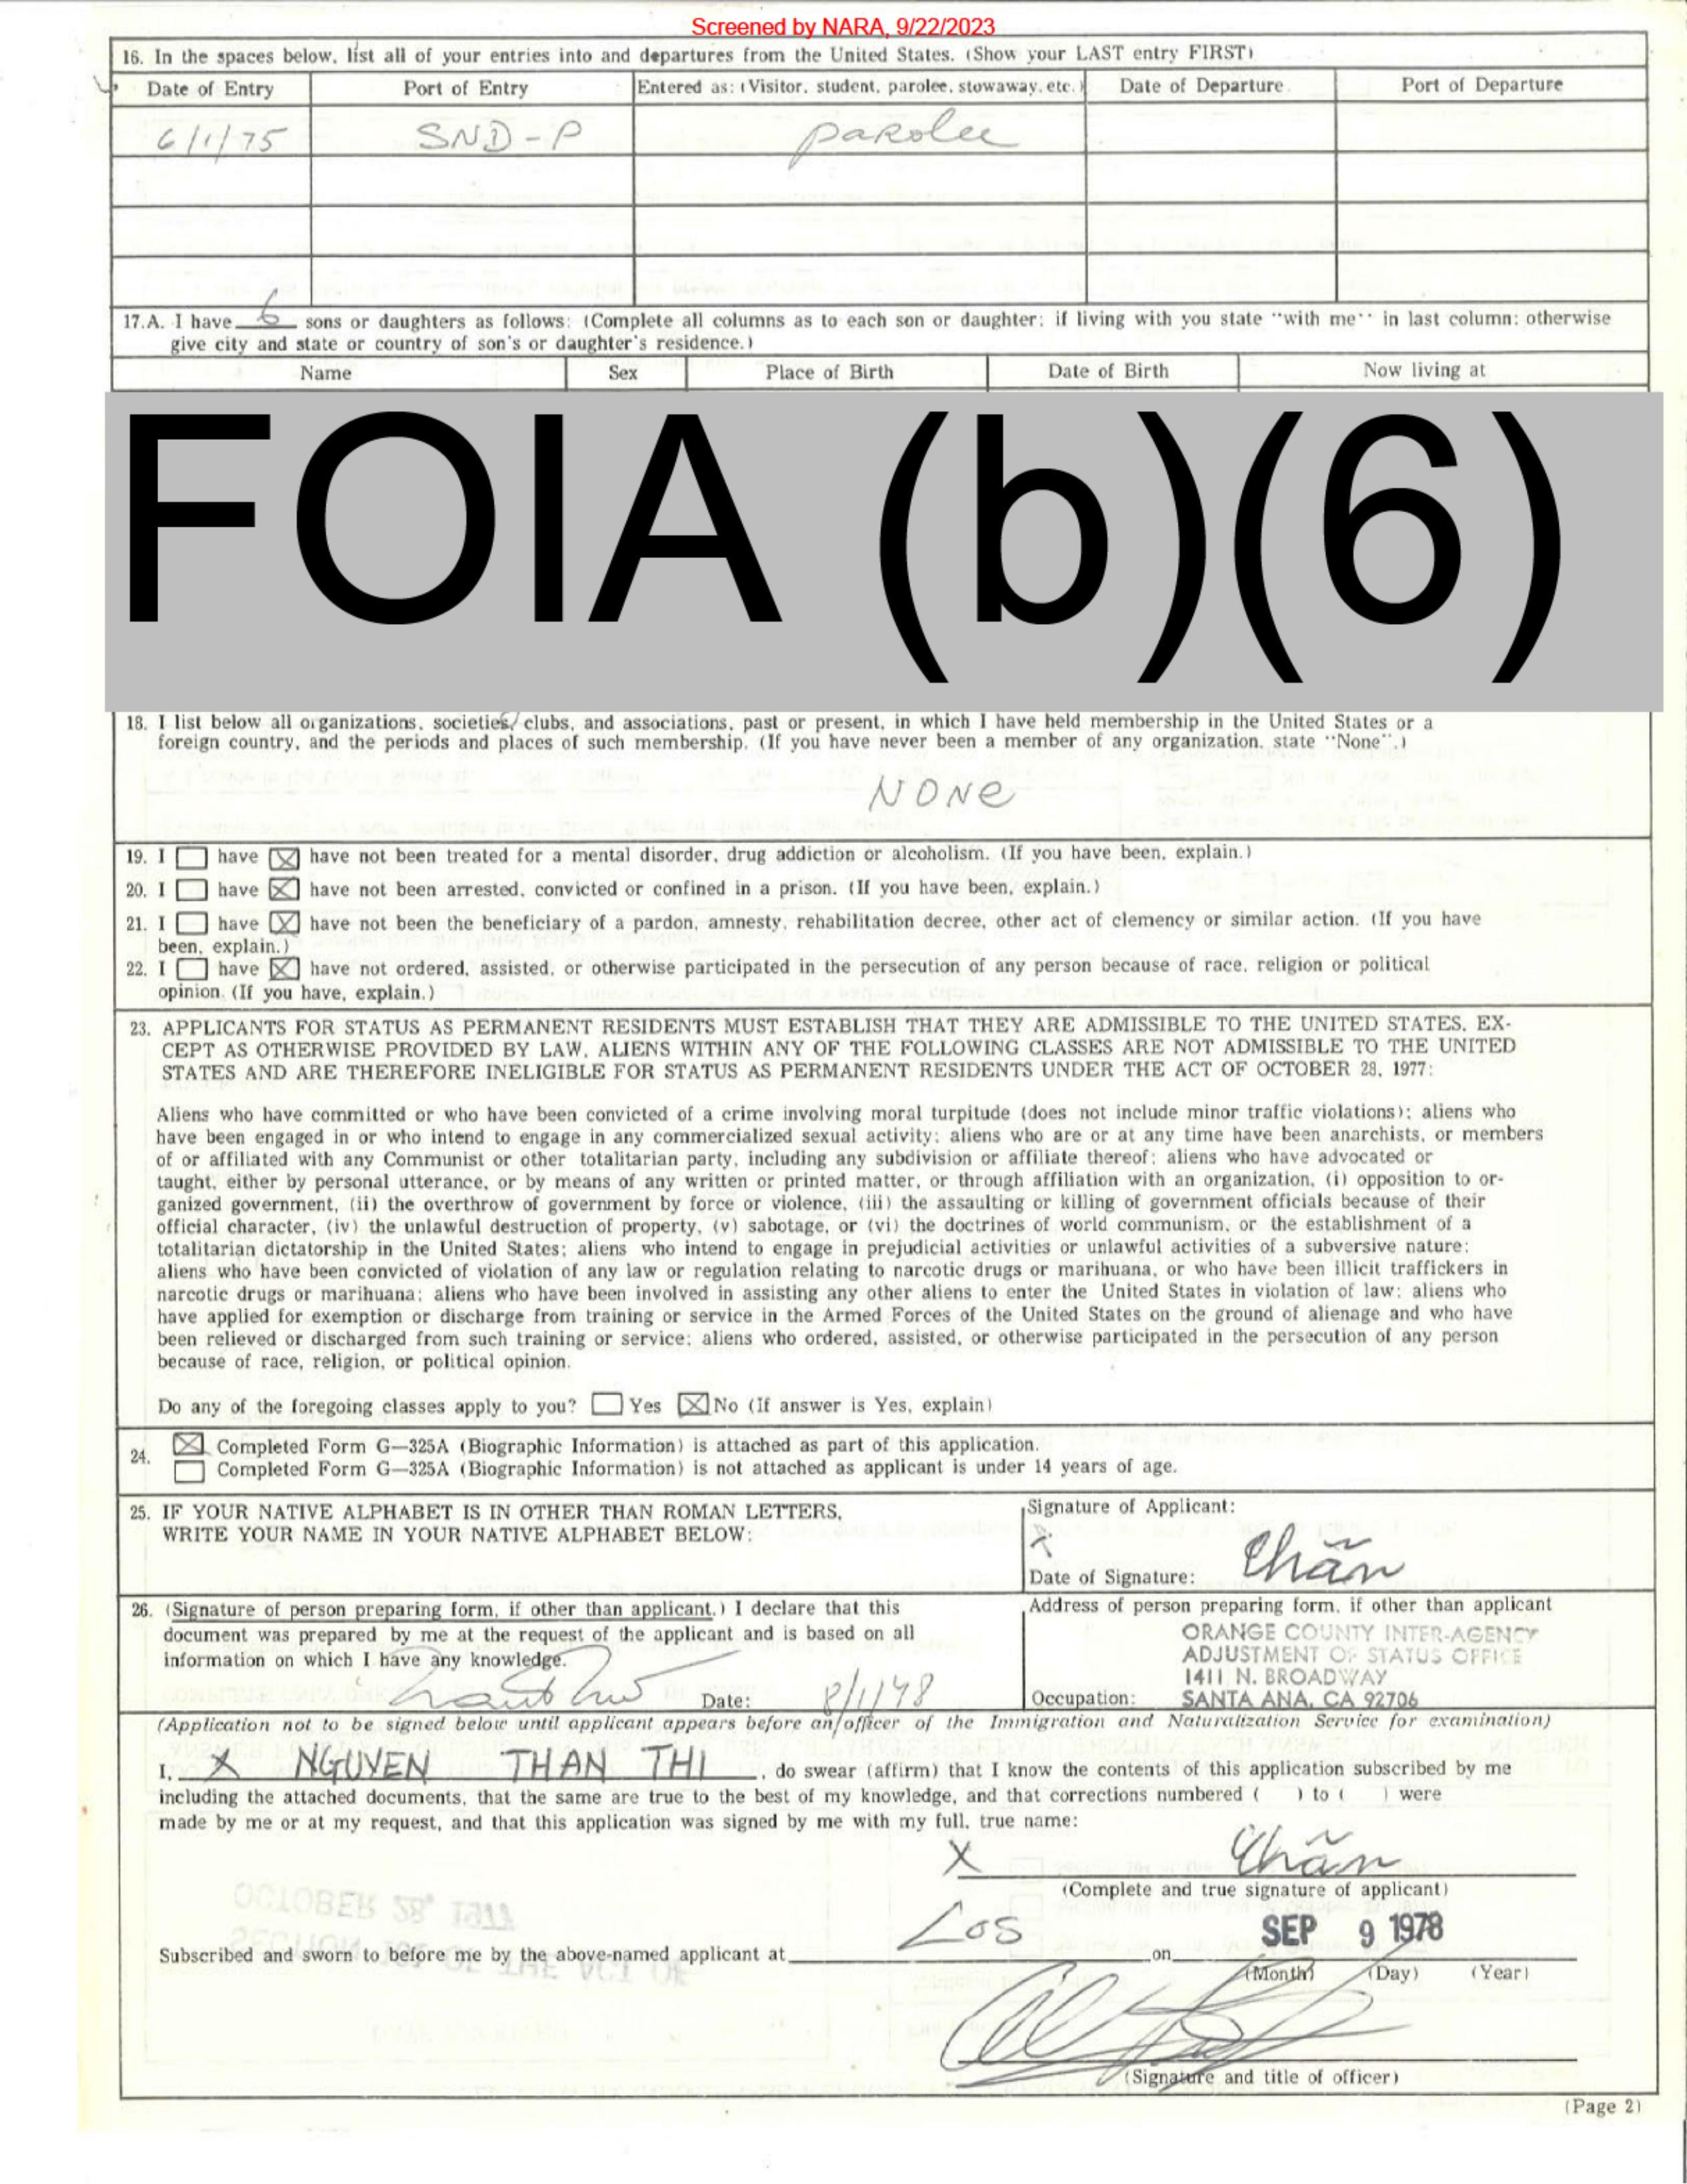 Screened by NARA, 9/22/2023
16. In the spaces below, list all of your entries into and departures from the United States. (Show your LAST entry FIRST)
Date of Entry Port of Entry Entered as: (Visitor, student, parolee, stowaway, etc.) Date of Departure Port of Departure
6/1/75 SND-P parolee
17.A. I have 6 sons or daughters as follows: (Complete all columns as to each son or daughter; if living with you state "with me" in last column; otherwise
give city and state or country of son's or daughter's residence.)
Name Sex Place of Birth Date of Birth Now living at
FOIA (b)(6)
18. I list below all organizations, societies, clubs, and associations, past or present, in which I have held membership in the United States or a
foreign country, and the periods and places of such membership. (If you have never been a member of any organization, state "None".)
NONe
19. I have have not been treated for a mental disorder, drug addiction or alcoholism. (If you have been, explain.)
20. I have have not been arrested, convicted or confined in a prison. (If you have been, explain.)
21. I have have not been the beneficiary of a pardon, amnesty, rehabilitation decree, other act of clemency or similar action. (If you have
been, explain.)
22. I have have not ordered, assisted, or otherwise participated in the persecution of any person because of race, religion or political
opinion. (If you have, explain.)
23. APPLICANTS FOR STATUS AS PERMANENT RESIDENTS MUST ESTABLISH THAT THEY ARE ADMISSIBLE TO THE UNITED STATES. EX-
CEPT AS OTHERWISE PROVIDED BY LAW, ALIENS WITHIN ANY OF THE FOLLOWING CLASSES ARE NOT ADMISSIBLE TO THE UNITED
STATES AND ARE THEREFORE INELIGIBLE FOR STATUS AS PERMANENT RESIDENTS UNDER THE ACT OF OCTOBER 28, 1977:
Aliens who have committed or who have been convicted of a crime involving moral turpitude (does not include minor traffic violations); aliens who
have been engaged in or who intend to engage in any commercialized sexual activity; aliens who are or at any time have been anarchists, or members
of or affiliated with any Communist or other totalitarian party, including any subdivision or affiliate thereof; aliens who have advocated or
taught, either by personal utterance, or by means of any written or printed matter, or through affiliation with an organization, (i) opposition to or-
ganized government, (ii) the overthrow of government by force or violence, (iii) the assaulting or killing of government officials because of their
official character, (iv) the unlawful destruction of property, (v) sabotage, or (vi) the doctrines of world communism, or the establishment of a
totalitarian dictatorship in the United States; aliens who intend to engage in prejudicial activities or unlawful activities of a subversive nature;
aliens who have been convicted of violation of any law or regulation relating to narcotic drugs or marihuana, or who have been illicit traffickers in
narcotic drugs or marihuana; aliens who have been involved in assisting any other aliens to enter the United States in violation of law; aliens who
have applied for exemption or discharge from training or service in the Armed Forces of the United States on the ground of alienage and who have
been relieved or discharged from such training or service; aliens who ordered, assisted, or otherwise participated in the persecution of any person
because of race, religion, or political opinion.
Do any of the foregoing classes apply to you? Yes No (If answer is Yes, explain)
24. Completed Form G-325A (Biographic Information) is attached as part of this application.
Completed Form G-325A (Biographic Information) is not attached as applicant is under 14 years of age.
25. IF YOUR NATIVE ALPHABET IS IN OTHER THAN ROMAN LETTERS,
WRITE YOUR NAME IN YOUR NATIVE ALPHABET BELOW:
Signature of Applicant:
X Chân
Date of Signature:
26. (Signature of person preparing form, if other than applicant.) I declare that this
document was prepared by me at the request of the applicant and is based on all
information on which I have any knowledge.
Date: 8/1/78
Address of person preparing form, if other than applicant
ORANGE COUNTY INTER-AGENCY
ADJUSTMENT OF STATUS OFFICE
1411 N. BROADWAY
Occupation: SANTA ANA, CA 92706
(Application not to be signed below until applicant appears before an officer of the Immigration and Naturalization Service for examination)
I, X NGUYEN THAN THI, do swear (affirm) that I know the contents of this application subscribed by me
including the attached documents, that the same are true to the best of my knowledge, and that corrections numbered ( ) to ( ) were
made by me or at my request, and that this application was signed by me with my full, true name:
X
(Complete and true signature of applicant)
Subscribed and sworn to before me by the above-named applicant at Los on SEP 9 1978
(Month) (Day) (Year)
(Signature and title of officer)
(Page 2)